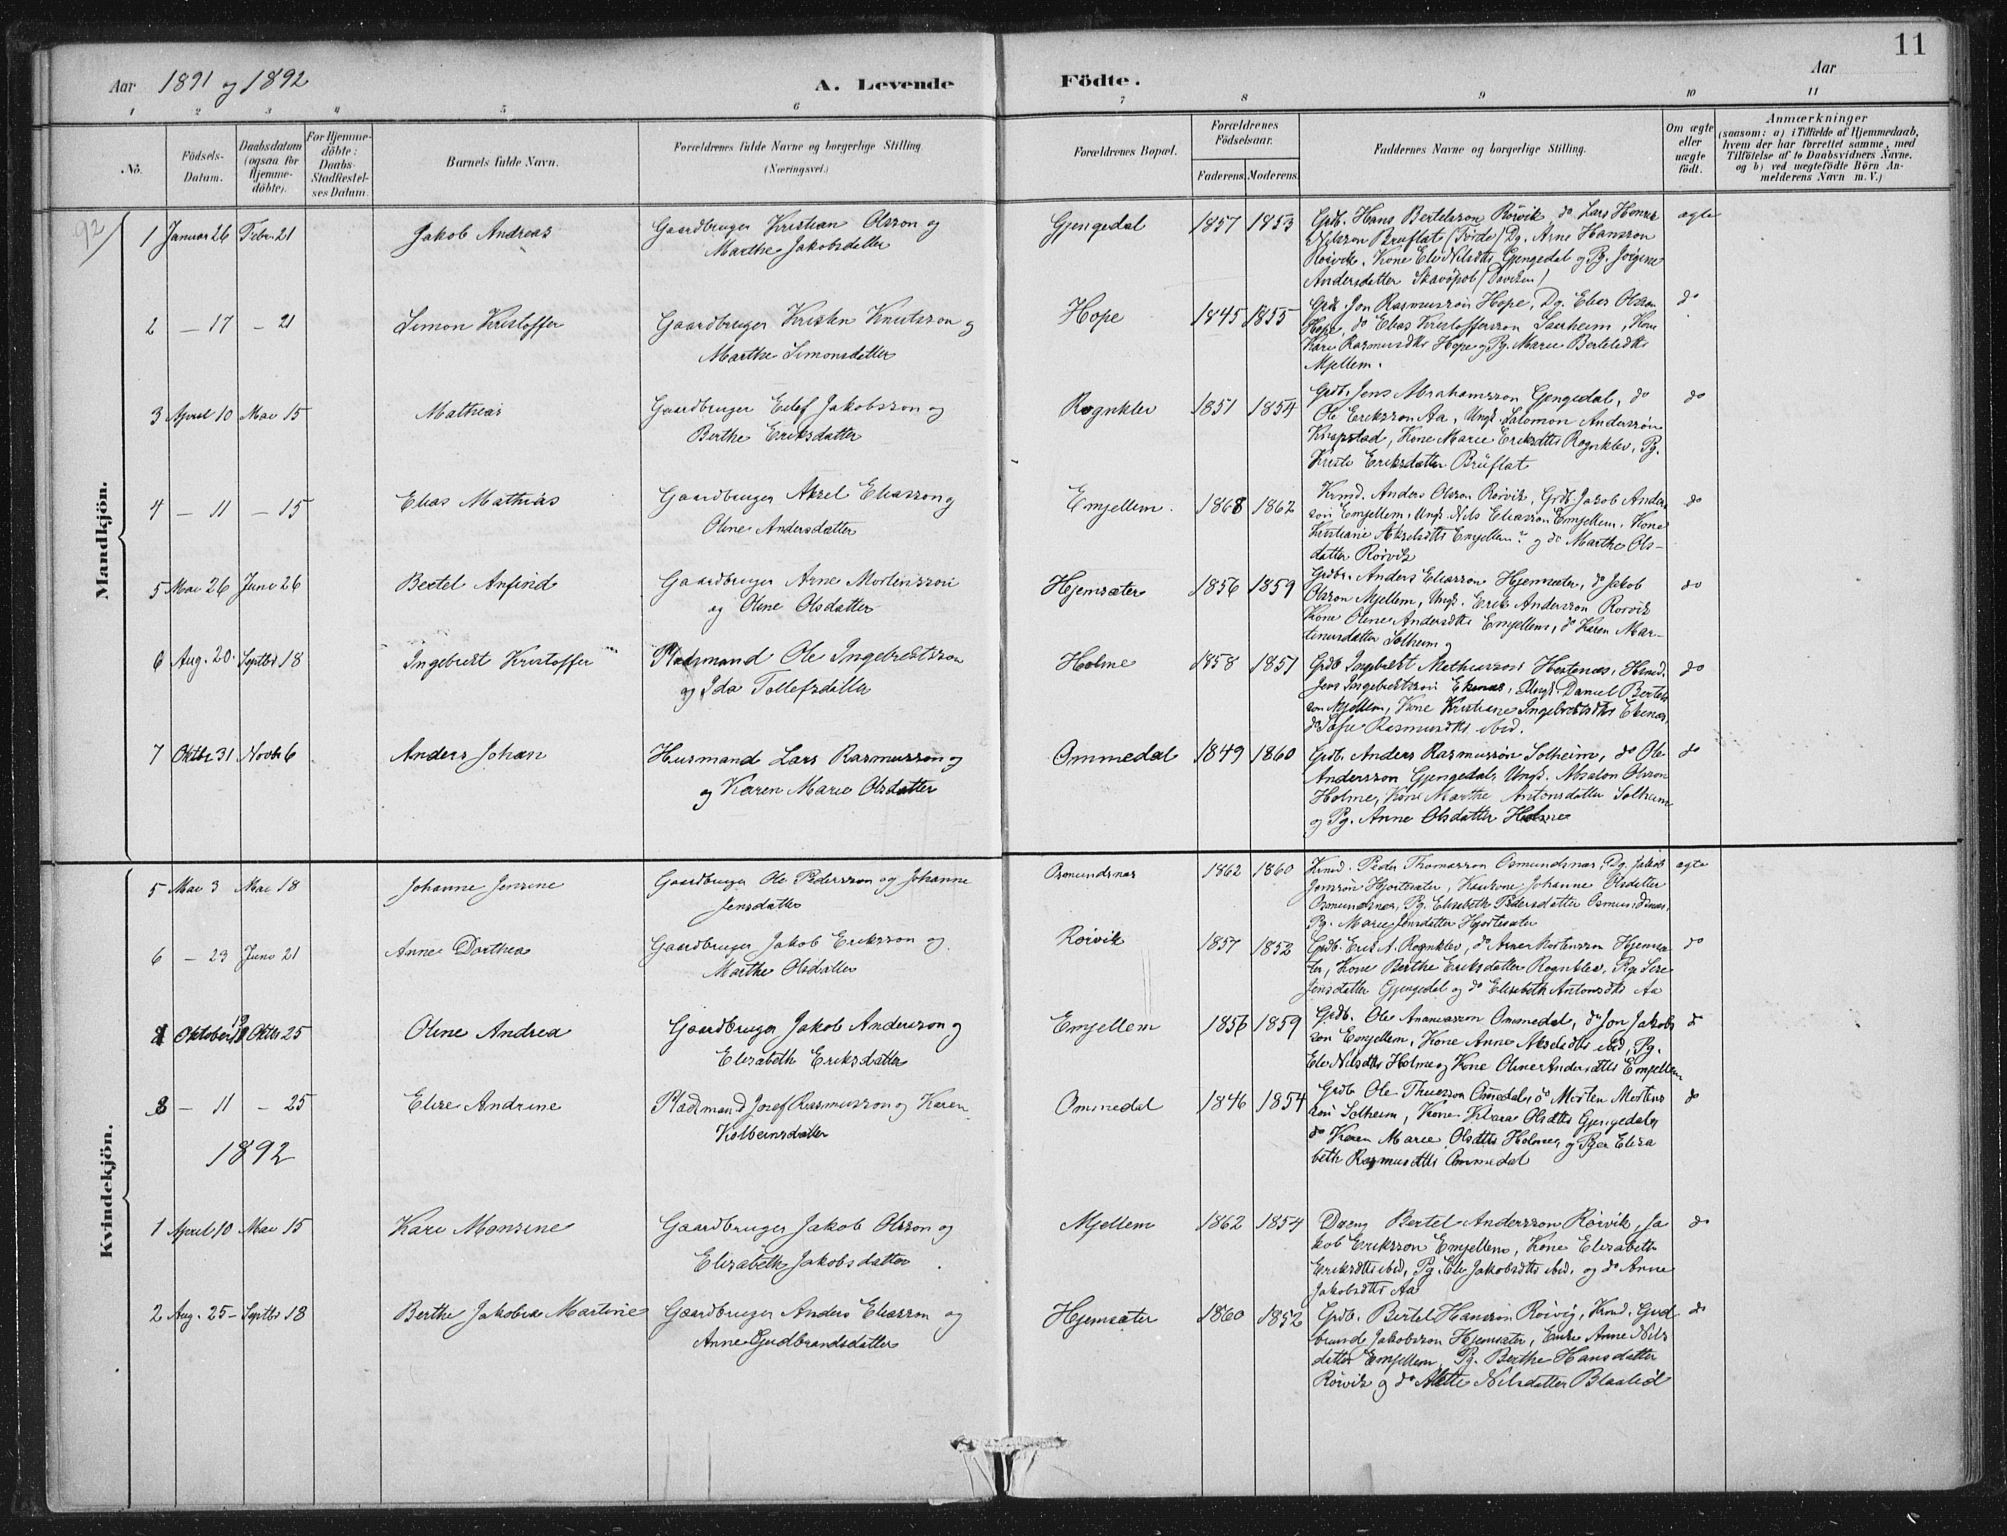 11
Aar 1891 og 1892
A. Levende Födte.
Aar
1 2 3 4 5 6 7 8 9 10 11
No.
Födsels-Datum.
Daabsdatum (ogsaa for Hjemmedöbte).
For Hjemmedöbte: Daabs-Stadfæstelses Datum.
Barnets fulde Navn.
Forældrenes fulde Navne og borgerlige Stilling. (Næringsvei.)
Forældrenes Bopæl.
Forældrenes Födselsaar.
Faderens. Moderens.
Faddernes Navne og borgerlige Stilling.
Om ægte eller uægte födt.
Anmærkninger
(saasom: a) i Tilfælde af Hjemmedaab, hvem der har forrettet samme, med Tilföielse af to Daabsvidners Navne, og b) ved uægtefödte Börn Anmelderens Navn m. V.)
92
Mandkjön.
1 Januar 26 Febr. 21 Jakob Andreas Gaardbruger Kristian Olsson og
Marthe Jakobsdatter
Gjengedal 1857 1853 Grdb. Hans Bertelsson Röivik, do Lars Henrik
Nilsson Bruflat (Förde) Dg. Arne Hansson
Röivik, Kone Eli Nilsdtr Gjengedal og Pg. Jörgine
Andersdatter
ægte
2 — 17 — 21 Simon Kristoffer Gaardbruger Kristen Knutsson og
Marthe Simonsdatter
Hope 1845 1855 Grdb. Jon Rasmusson Hope, Dg. Elias Olsson
Hope, do Elias Kristoffersson Saxheim, Kone
Kari Rasmusdtr Hope og Pg. Marie Bertelsdtr
Mjellem.
do
3 April 10 Mai 15 Mathias Gaardbruger Eilef Jakobsson og
Berthe Eriksdatter
Rognklev 1851 1854 Grdb. Jens Abrahamsson Gjengedal, do
Ole Eriksson Aa, Ungk. Salomon Andersson
Knapstad, Kone Marie Eriksdtr Rognklev, Pg.
Kristi Eriksdatter Bruflat
do
4 — 11 — 15 Elias Mathias Gaardbruger Aksel Eliasson og
Oline Andersdatter
Emjellem. 1868 1862 Krmd. Anders Olsson Röivik, Grdb. Jakob Anders
son Emjellem, Ungk. Nils Eliasson Emjellem, Kone
Kristiane Akselsdtr Emjellem og do Marthe Ols-
datter Röivik
do
5 Mai 26 Juni 26 Bertel Anfind Gaardbruger Arne Mortensson
og Oline Olsdatter
Hjemsæter 1856 1859 Grdbr. Anders Eliasson Hjemsæter, do Jakob
Olsson Mjellem, Ungk. Erik Andersson Rörvik
Kone Oline Andersdtr Emjellem, do Karen Mar-
tinusdatter Solheim
do
6 Aug. 20. Septbr 18 Ingebrigt Kristoffer Pladsmand Ole Ingebrigtsson
og Ida Tollefsdatter
Holme 1858 1851 Grdb. Ingebrigt Mathiasson Hestenæs, Husmd.
Jens Ingebrigtsson Ekenæs, Ungk. Daniel Bertels
son Mjellem, Kone Kristiane Ingebrigtsdtr Ekenæs,
do Sofie Rasmusdtr ibid.
do
7 Oktbr 31 Novbr 6 Anders Johan Husmand Lars Rasmusson og
og Karen Marie Olsdatter
Ommedal 1849 1860 Grdb. Anders Rasmusson Solheim, do Ole
Andersson Gjengedal, Ungk. Absalon Olsson
Holme, Kone Marthe Antonsdatter Solheim
og Pg. Anne Olsdatter Holme
do
Kvindekjön.
5 Mai 3 Mai 18 Johanne Jensine Gaardbruger Ole Pedersson og Johanne
Jensdatter
Osmundsnæs 1862 1860 Krmd. Peder Thomasson Osmundsnæs, Dg. Jakob
Jonsson Hjortesæter, Johanne Olsdatter
Osmundsnæs, Pg. Elisabeth Pedersdatter Osmundsnæs,
Pg. Marie Jensdatter Hjortesæter
ægte
6 — 23 Juni 21 Anne Dorthea Gaardbruger Jakob Eriksson og
Marthe Olsdatter
Röivik 1857 1852 Grdb. Erik A. Rognklev, do Arne Mortensson Hjemsæ
ter, Kone Berthe Eriksdatter Rognklev, Pg.
Jensdatter Gjengedal og do Elisabeth Antonsdtr Aa
do
Oktober Oktbr 25 Oline Andrea Gaardbruger Jakob Andersson og
Elisabeth Eriksdatter
Emjellem 1856 1859 Grdb. Ole Ananiasson Ommedal, do Jon Jakobs
son Emjellem, Kone Anne Akselsdtr ibid, Pg.
Eli Nilsdtr Holme og Kone Oline Andersdtr Emjellem
do
8 — 11 — 25 Elise Andrine Pladsmand Josef Rasmusson og Karen
Kolbeinsdatter
Ommedal 1846 1854 Grdb. Ole Thuesson Ommedal, do Morten Mortens
son Solheim, Kone Klara Olsdtr Gjengedal,
do Karen Marie Olsdtr Holme, og Elisa
beth Rasmusdtr Ommedal
do
1892
1 April 10 Mai 15 Kari Monsine Gaardbruger Jakob Olsson og
Elisabeth Jakobsdatter
Mjellem 1862 1854 Dreng Bertel Andersson Röivik, Ja
kob Eriksson Emjellem, Kone Elisabeth
Eriksdtr ibid, Pg. Eli Jakobsdtr ibid. og do Anne
Jakobsdtr Aa
do
2 Aug. 25 — Septbr 18 Berthe Jakobia Martine Gaardbruger Anders Eliasson og
Anne Gudbrandsdatter
Hjemsæter 1860 1852 Grdb. Bertel Hansson Röivig, Krmd. Gud
brand Jakobsson Hjemsæter, Enke Anne Nils
datter Emjellem, Pg. Berthe Hansdatter
Röivik og do Nilsdatter Blaalid
do